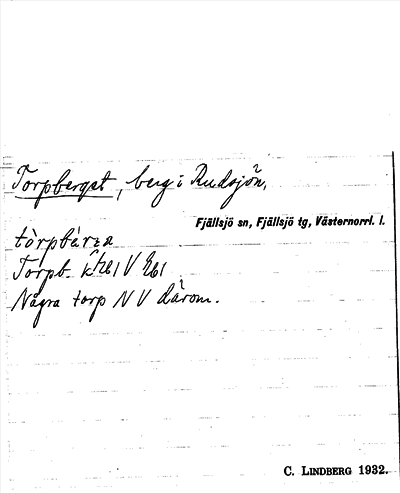 Torpberget, berg i Rudsjön,
Fjällsjö sn, Fjällsjö tg, Västernorrl. l.
Torpb. V
Några torp N V därom.
C. LINDBERG 1932.